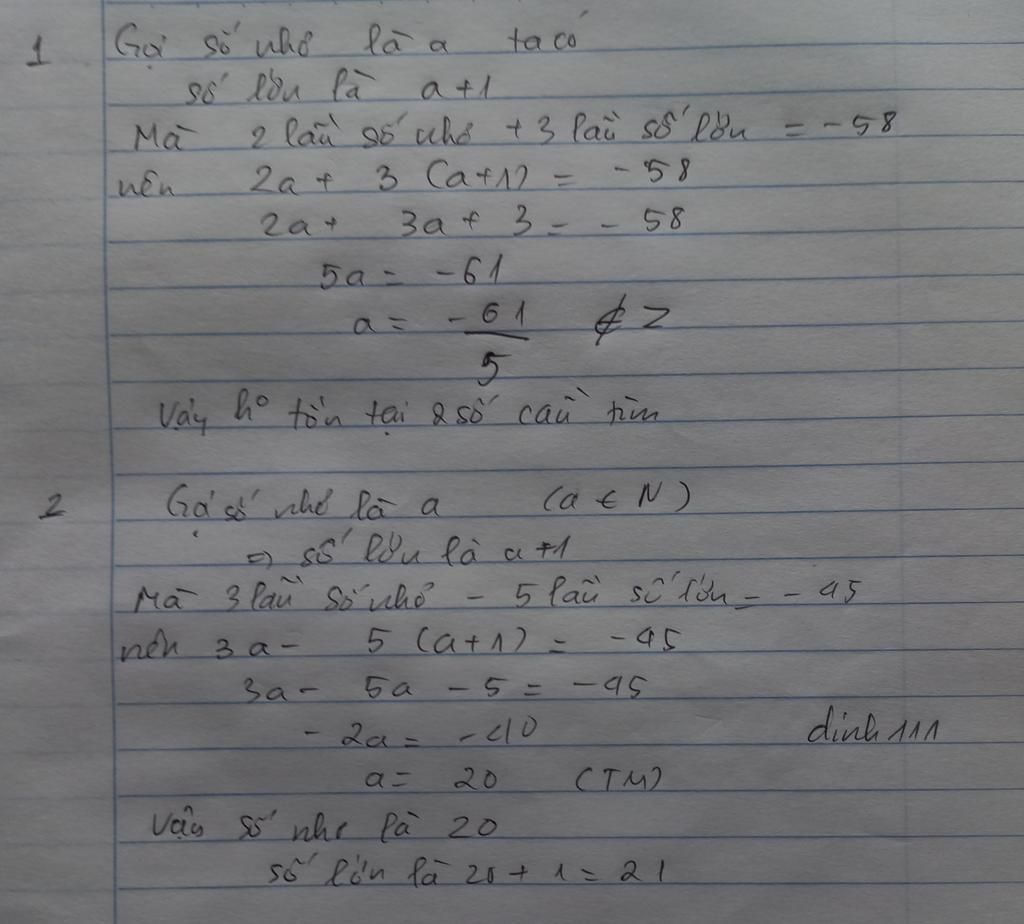 1 Gọi số nhỏ là a ta có
số lớn là a+1
Mà 2 lần số nhỏ + 3 lần số lớn = -58
nên 2a + 3 (a+1) = -58
2a + 3a + 3 = - 58
5a = -61
a = -61/5 ∉ Z
Vậy ko tồn tại 2 số cần tìm
2 Gọi số nhỏ là a (a ∈ N)
=> số lớn là a+1
Mà 3 lần số nhỏ - 5 lần số lớn = - 45
nên 3a - 5 (a+1) = -45
3a - 5a - 5 = -45
- 2a = -40
a = 20 (TM)
Vậy số nhỏ là 20
số lớn là 20 + 1 = 21
dinh111